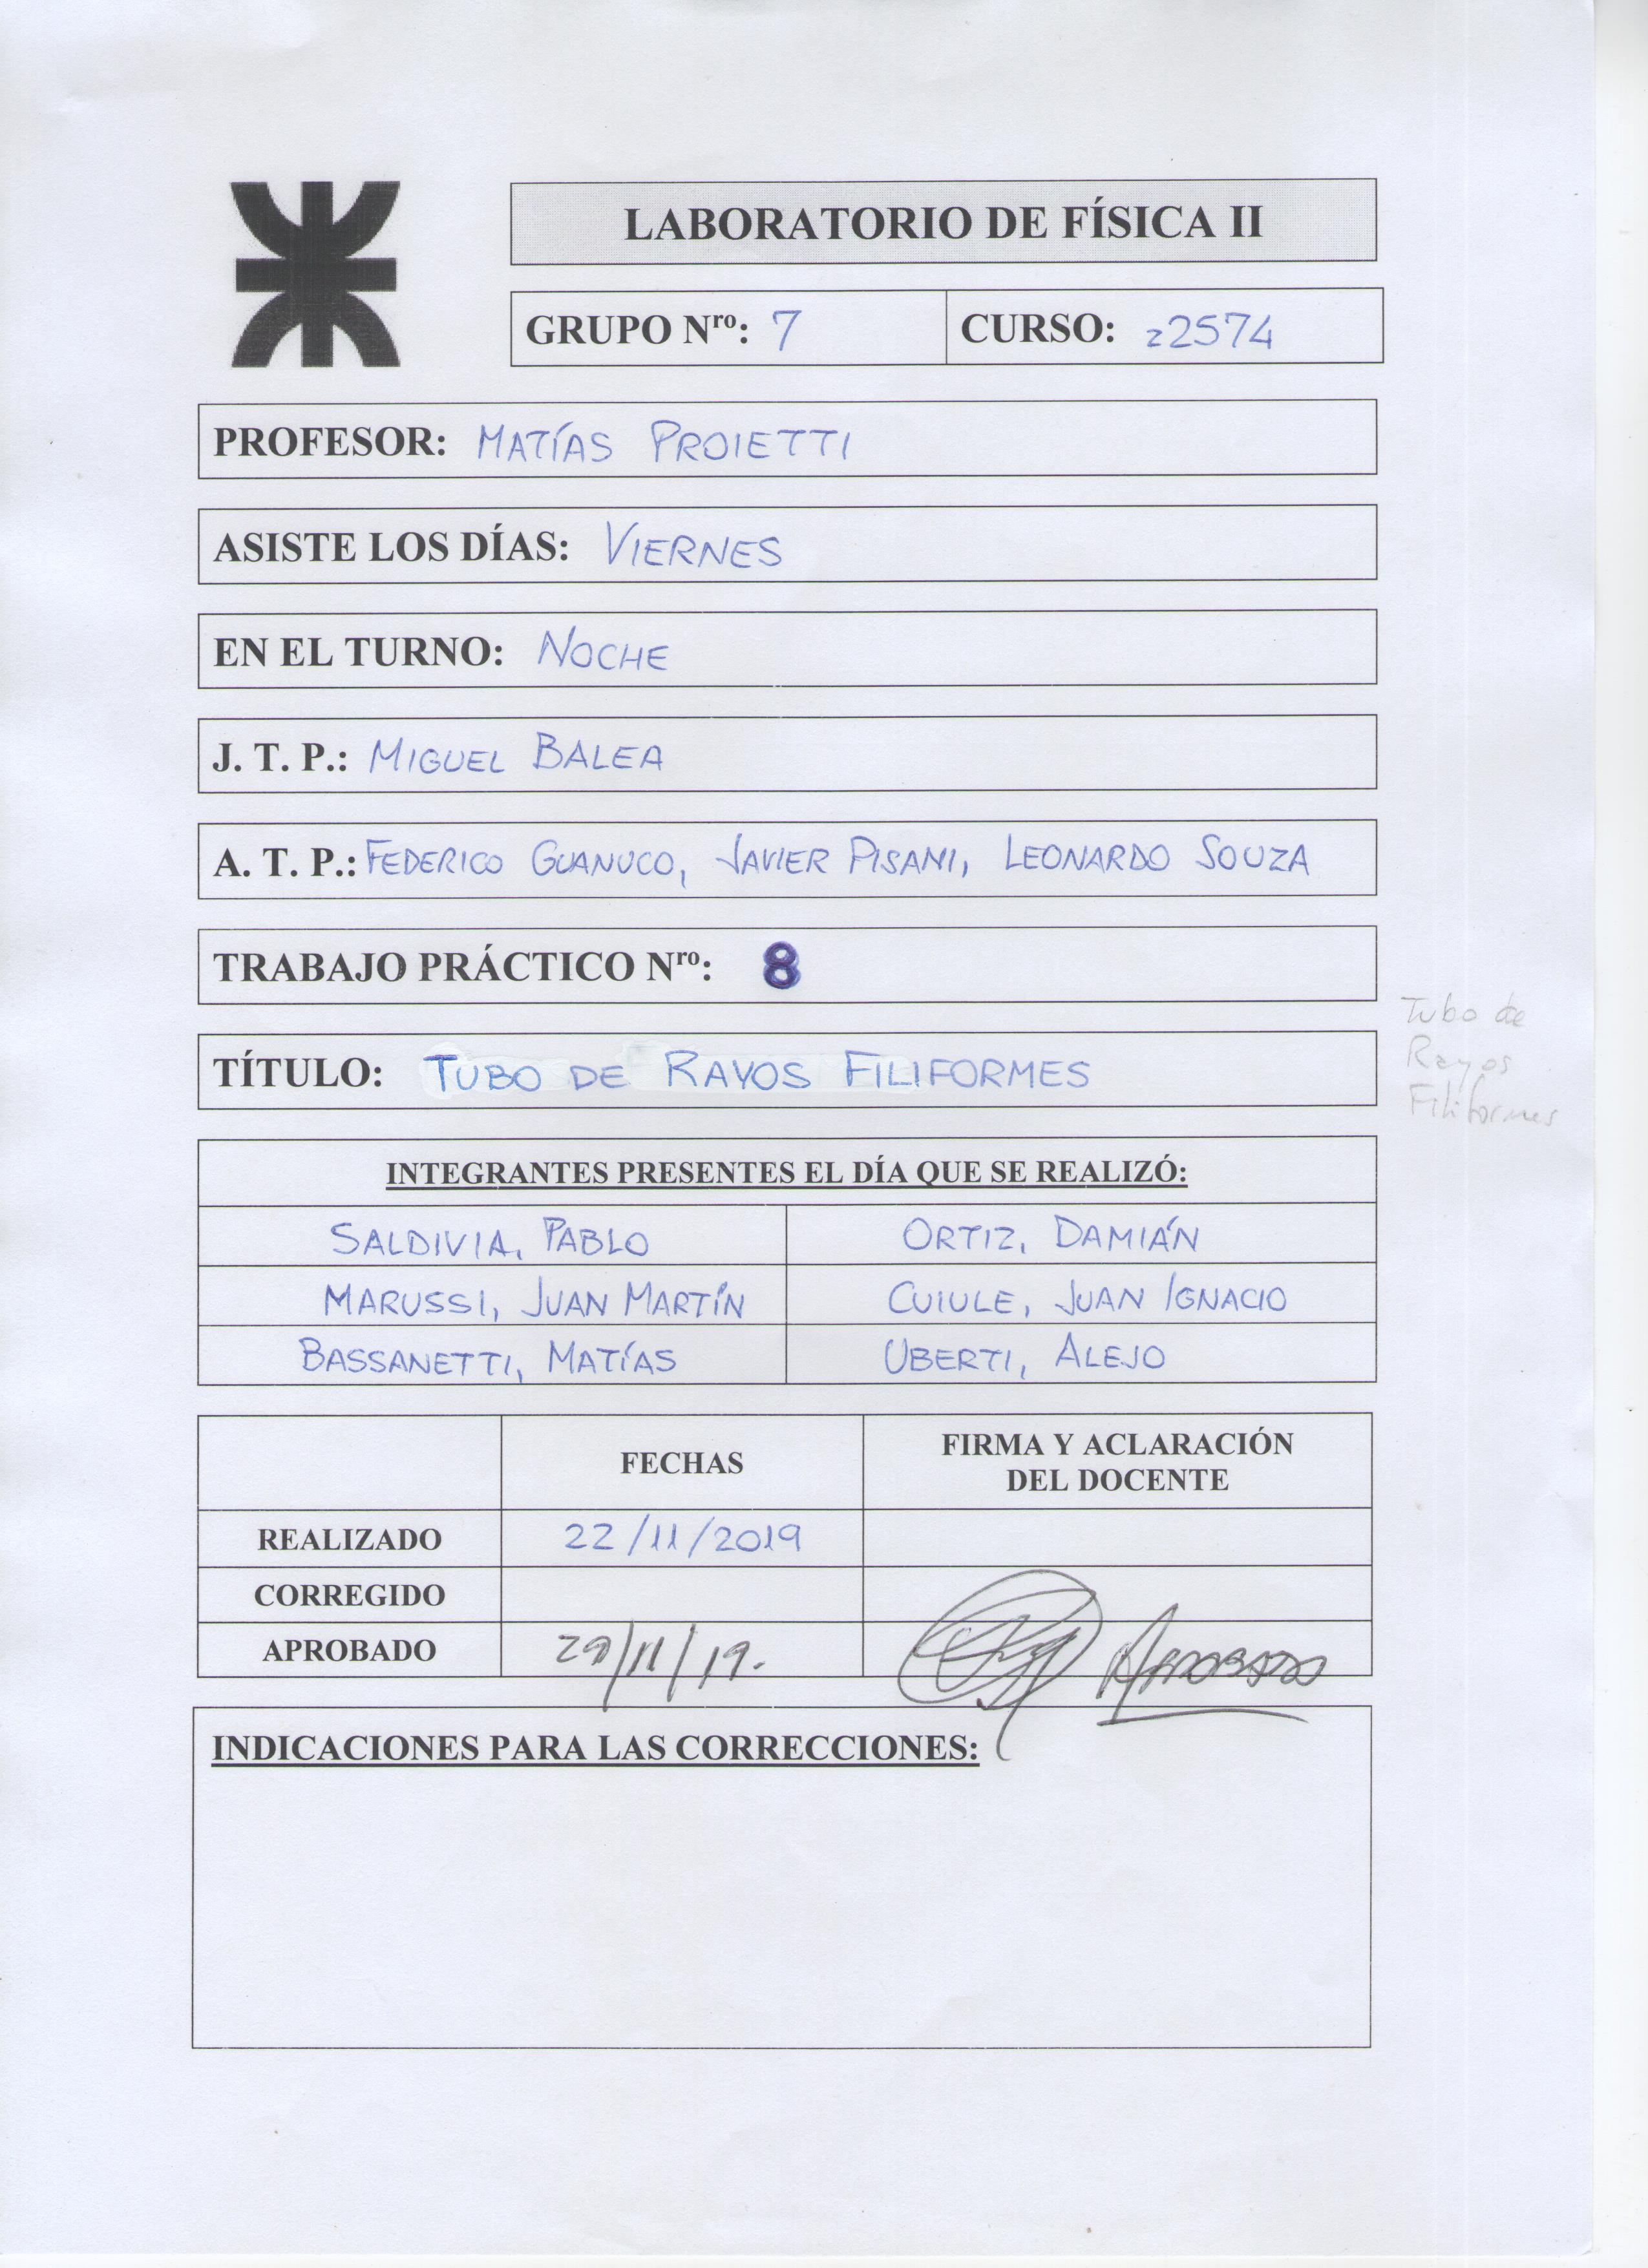 LABORATORIO DE FÍSICA II
GRUPO Nro: 7 CURSO: z2574
PROFESOR: MATÍAS PROIETTI
ASISTE LOS DÍAS: VIERNES
EN EL TURNO: NOCHE
J. T. P.: MIGUEL BALEA
A. T. P.: FEDERICO GUANUCO, JAVIER PISANI, LEONARDO SOUZA
TRABAJO PRÁCTICO Nro: 8
TÍTULO: TUBO DE RAYOS FILIFORMES
Tubo de
Rayos
Filiformes
INTEGRANTES PRESENTES EL DÍA QUE SE REALIZÓ:
SALDIVIA, PABLO ORTIZ, DAMIÁN
MARUSSI, JUAN MARTÍN CUIULE, JUAN IGNACIO
BASSANETTI, MATÍAS UBERTI, ALEJO
FECHAS FIRMA Y ACLARACIÓN
DEL DOCENTE
REALIZADO 22/11/2019
CORREGIDO
APROBADO 29/11/19. APROBADO
INDICACIONES PARA LAS CORRECCIONES: